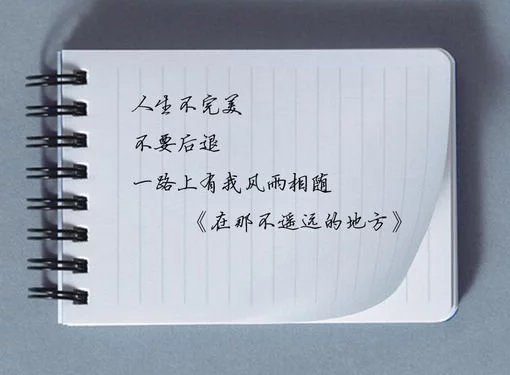 人生不完美
不要后退
一路上有我风雨相随
《在那不遥远的地方》